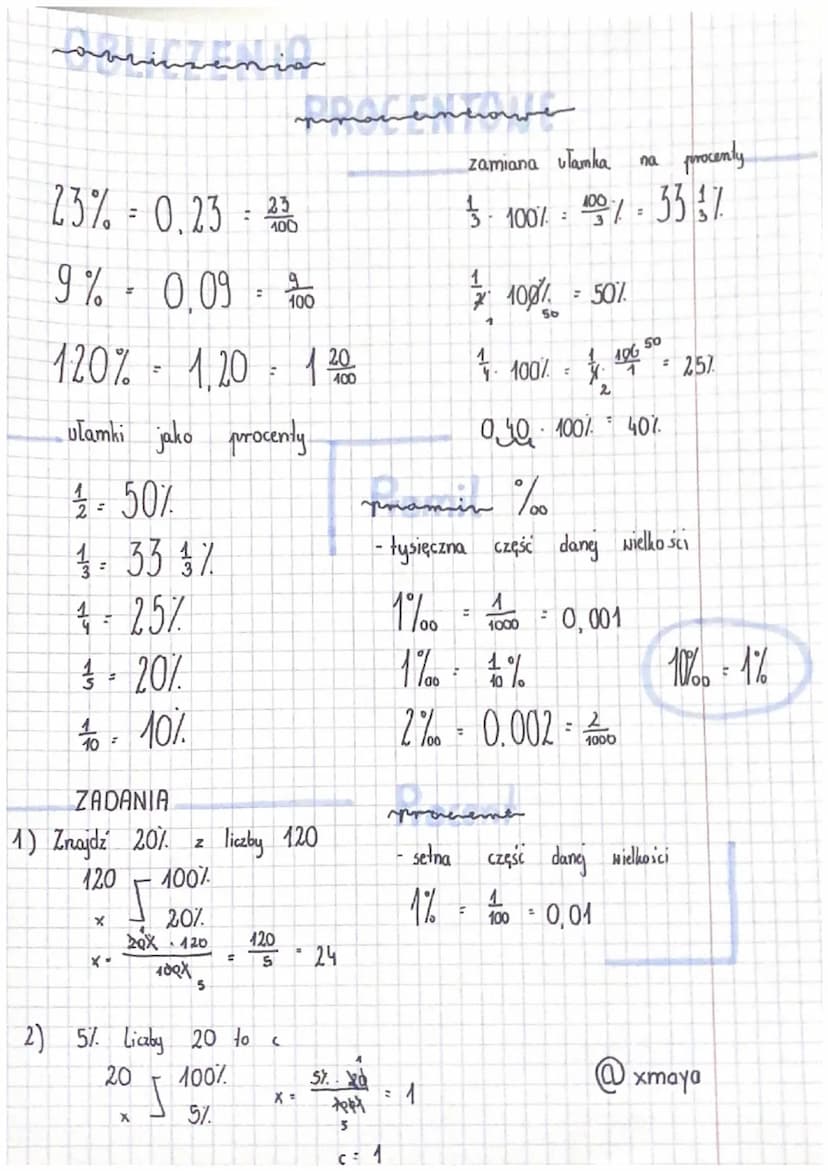 OBLICZENIA
obliczenia
PROCENTOWE
procentowe
23% = 0,23 = 23/100
9% = 0,09 = 9/100
120% = 1,20 = 1 20/100
zamiana ułamka na procenty
1/3 · 100% = 100/3 % = 33 1/3 %
1/2 · 100% = 50%
1 50
1/4 · 100% = 1/4 · 100/1 = 25%
50
2
0,40 · 100% = 40%
ułamki jako procenty
1/2 = 50%
1/3 = 33 1/3 %
1/4 = 25%
1/5 = 20%
1/10 = 10%
Promil
promil ‰
- tysięczna część danej wielkości
1‰ = 1/1000 = 0,001
1‰ = 1/10 %
2‰ = 0.002 = 2/1000
10‰ = 1%
ZADANIA
1) Znajdź 20% z liczby 120
120 100%
x 20%
x = 20% · 120 / 100% = 120/5 = 24
1
5
Procent
procent
- setna część danej wielkości
1% = 1/100 = 0,01
2) 5% liczby 20 to c
20 100%
x 5%
x = 5% · 20 / 100% = 1
1
5
c = 1
@xmaya